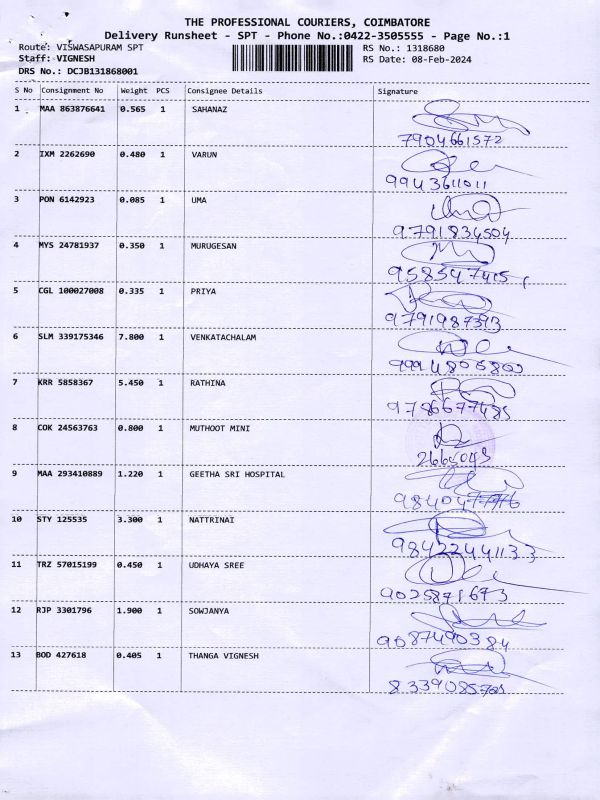 THE PROFESSIONAL COURIERS, COIMBATORE
Delivery Runsheet - SPT - Phone No.:0422-3505555 - Page No.:1
Route: VISWASAPURAM SPT RS No.: 1318680
Staff: VIGNESH RS Date: 08-Feb-2024
DRS No.: DCJB131868001
S No Consignment No Weight PCS Consignee Details Signature
1 MAA 863876641 0.565 1 SAHANAZ
7904661572
2 IXM 2262690 0.480 1 VARUN
9943611011
3 PON 6142923 0.085 1 UMA
9791834504
4 MYS 24781937 0.350 1 MURUGESAN
958547415
5 CGL 100027008 0.335 1 PRIYA
9791987393
6 SLM 339175346 7.800 1 VENKATACHALAM
7 KRR 5858367 5.450 1 RATHINA
9786677485
8 COK 24563763 0.800 1 MUTHOOT MINI
9 MAA 293410889 1.220 1 GEETHA SRI HOSPITAL
10 STY 125535 3.300 1 NATTRINAI
9842244133
11 TRZ 57015199 0.450 1 UDHAYA SREE
9025871673
12 RJP 3301796 1.900 1 SOWJANYA
9087490384
13 BOD 427618 0.405 1 THANGA VIGNESH